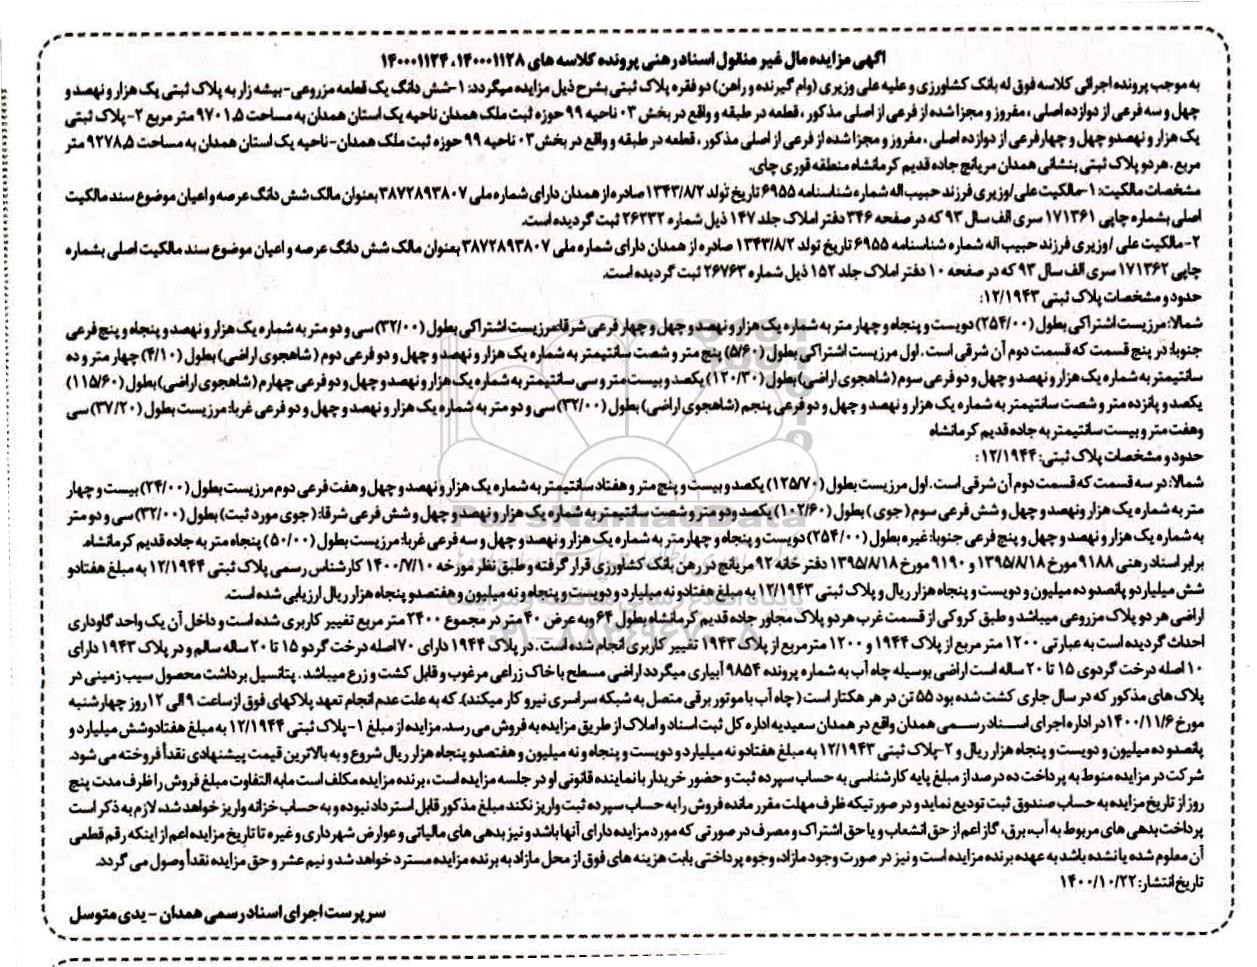 آگهی مزایده مال غیر منقول اسناد رهنی پرونده کلاسه های ۱۴۰۰۰۱۱۲۸، ۱۴۰۰۰۱۱۲۴
به موجب پرونده اجرائی کلاسه فوق له بانک کشاورزی و علیه علی وزیری (وام گیرنده و راهن) دو فقره پلاک ثبتی بشرح ذیل مزایده میگردد: ۱-شش دانگ یک قطعه مزروعی-بیشه زار به پلاک ثبتی یک هزار و نهصد و
چهل و سه فرعی از دوازده اصلی ، مفروز و مجزا شده از فرعی از اصلی مذکور ، قطعه در طبقه و واقع در بخش ۰۳ ناحیه ۹۹ حوزه ثبت ملک همدان ناحیه یک استان همدان به مساحت ۹۷۰۱,۵ متر مربع ۲- پلاک ثبتی
یک هزار و نهصدو چهل و چهارفرعی از دوازده اصلی ، مفروز و مجزا شده از فرعی از اصلی مذکور ، قطعه در طبقه و واقع در بخش ۰۳ ناحیه ۹۹ حوزه ثبت ملک همدان-ناحیه یک استان همدان به مساحت ۹۲۷۸,۵ متر
مربع . هر دو پلاک ثبتی بنشانی همدان مریانج جاده قدیم کرمانشاه منطقه قوری چای.
مشخصات مالکیت: ۱-مالکیت علی/وزیری فرزند حبیب اله شماره شناسنامه ۶۹۵۵ تاریخ تولد ۱۳۴۳/۸/۲ صادره از همدان دارای شماره ملی ۳۸۷۲۸۹۳۸۰۷ بعنوان مالک شش دانگ عرصه و اعیان موضوع سند مالکیت
اصلی بشماره چاپی ۱۷۱۳۶۱ سری الف سال ۹۳ که در صفحه ۳۴۶ دفتر املاک جلد ۱۴۷ ذیل شماره ۲۶۲۳۲ ثبت گردیده است.
۲-مالکیت علی /وزیری فرزند حبیب اله شماره شناسنامه ۶۹۵۵ تاریخ تولد ۱۳۴۳/۸/۲ صادره از همدان دارای شماره ملی ۳۸۷۲۸۹۳۸۰۷ بعنوان مالک شش دانگ عرصه و اعیان موضوع سند مالکیت اصلی بشماره
چاپی ۱۷۱۳۶۲ سری الف سال ۹۳ که در صفحه ۱۰ دفتر املاک جلد ۱۵۲ ذیل شماره ۲۶۷۶۳ ثبت گردیده است.
حدود و مشخصات پلاک ثبتی ۱۲/۱۹۴۳:
شمالا: مرزیست اشتراکی بطول (۲۵۴/۰۰) دویست و پنجاه و چهار متر به شماره یک هزار و نهصد و چهل و چهار فرعی شرقا: مرزیست اشتراکی بطول (۳۲/۰۰) سی و دو متر به شماره یک هزار و نهصد و پنجاه و پنج فرعی
جنوبا: در پنج قسمت که قسمت دوم آن شرقی است . اول مرزیست اشتراکی بطول (۵/۶۰) پنج متر و شصت سانتیمتر به شماره یک هزار و نهصد و چهل و دو فرعی دوم (شاهجوی اراضی) بطول (۴/۱۰) چهار متر و ده
سانتیمتر به شماره یک هزار و نهصد و چهل و دو فرعی سوم (شاهجوی اراضی) بطول (۱۲۰/۳۰) یکصد و بیست متر و سی سانتیمتر به شماره یک هزار و نهصد و چهل و دو فرعی چهارم (شاهجوی اراضی) بطول (۱۱۵/۶۰)
یکصد و پانزده متر و شصت سانتیمتر به شماره یک هزار و نهصد و چهل و دو فرعی پنجم (شاهجوی اراضی) بطول (۳۲/۰۰) سی و دو متر به شماره یک هزار و نهصد و چهل و دو فرعی غربا: مرزیست بطول (۳۷/۲۰) سی
و هفت متر و بیست سانتیمتر به جاده قدیم کرمانشاه
حدود و مشخصات پلاک ثبتی: ۱۲/۱۹۴۴:
شمالا: در سه قسمت که قسمت دوم آن شرقی است . اول مرزیست بطول (۱۲۵/۷۰) یکصد و بیست و پنج متر و هفتاد سانتیمتر به شماره یک هزار و نهصد و چهل و هفت فرعی دوم مرزیست بطول (۲۴/۰۰) بیست و چهار
متر به شماره یک هزار ونهصد و چهل و شش فرعی سوم (جوی) بطول (۱۰۲/۶۰) یکصد ودو متر و شصت سانتیمتر به شماره یک هزار و نهصد و چهل و شش فرعی شرقا: (جوی مورد ثبت) بطول (۳۲/۰۰) سی و دو متر
به شماره یک هزار و نهصد و چهل و پنج فرعی جنوبا: غیره بطول (۲۵۴/۰۰) دویست و پنجاه و چهار متر به شماره یک هزار و نهصد و چهل و سه فرعی غربا: مرزیست بطول (۵۰/۰۰) پنجاه متر به جاده قدیم کرمانشاه.
برابر اسناد رهنی ۹۱۸۸ مورخ ۱۳۹۵/۸/۱۸ و ۹۱۹۰ مورخ ۱۳۹۵/۸/۱۸ دفتر خانه ۹۲ مریانج در رهن بانک کشاورزی قرار گرفته و طبق نظر مورخه ۱۴۰۰/۷/۱۰ کارشناس رسمی پلاک ثبتی ۱۲/۱۹۴۴ به مبلغ هفتادو
شش میلیارد و پانصدو ده میلیون و دویست و پنجاه هزار ریال و پلاک ثبتی ۱۲/۱۹۴۳ به مبلغ هفتادو نه میلیارد و دویست و پنجاه و نه میلیون و هفتصدو پنجاه هزار ریال ارزیابی شده است.
اراضی هر دو پلاک مزروعی میباشد و طبق کروکی از قسمت غرب هر دو پلاک مجاور جاده قدیم کرمانشاه بطول ۶۴ و به عرض ۴۰ متر در مجموع ۲۴۰۰ متر مربع تغییر کاربری شده است و داخل آن یک واحد گاوداری
احداث گردیده است به عبارتی ۱۲۰۰ متر مربع از پلاک ۱۹۴۴ و ۱۲۰۰ مترمربع از پلاک ۱۹۴۳ تغییر کاربری انجام شده است . در پلاک ۱۹۴۴ دارای ۷۰ اصله درخت گردو ۱۵ تا ۲۰ ساله سالم و در پلاک ۱۹۴۳ دارای
۱۰ اصله درخت گردوی ۱۵ تا ۲۰ ساله است اراضی بوسیله چاه آب به شماره پرونده ۹۸۵۴ آبیاری میگردد اراضی مسطح با خاک زراعی مرغوب و قابل کشت و زرع میباشد . پتانسیل برداشت محصول سیب زمینی در
پلاک های مذکور که در سال جاری کشت شده بود ۵۵ تن در هر هکتار است (چاه آب با موتور برقی متصل به شبکه سراسری نیرو کار میکند). که به علت عدم انجام تعهد پلاکهای فوق از ساعت ۹ الی ۱۲ روز چهارشنبه
مورخ ۱۴۰۰/۱۱/۶ در اداره اجرای اسناد رسمی همدان واقع در همدان سعیدیه اداره کل ثبت اسناد و املاک از طریق مزایده به فروش می رسد. مزایده از مبلغ ۱-پلاک ثبتی ۱۲/۱۹۴۴ به مبلغ هفتادوشش میلیارد و
پانصدو ده میلیون و دویست و پنجاه هزار ریال و ۲-پلاک ثبتی ۱۲/۱۹۴۳ به مبلغ هفتادو نه میلیارد و دویست و پنجاه و نه میلیون و هفتصدو پنجاه هزار ریال شروع و به بالاترین قیمت پیشنهادی نقداً فروخته می شود.
شرکت در مزایده منوط به پرداخت ده درصد از مبلغ پایه کارشناسی به حساب سپرده ثبت و حضور خریدار یا نماینده قانونی او در جلسه مزایده است ، برنده مزایده مکلف است مابه التفاوت مبلغ فروش را ظرف مدت پنج
روز از تاریخ مزایده به حساب صندوق ثبت تودیع نماید و در صورتیکه ظرف مهلت مقرر مانده فروش را به حساب سپرده ثبت واریز نکند مبلغ مذکور قابل استرداد نبوده و به حساب خزانه واریز خواهد شد، لازم به ذکر است
پرداخت بدهی های مربوط به آب، برق، گاز اعم از حق انشعاب و یا حق اشتراک و مصرف در صورتی که مورد مزایده دارای آنها باشد و نیز بدهی های مالیاتی و عوارض شهرداری و غیره تا تاریخ مزایده اعم از اینکه رقم قطعی
آن معلوم شده یا نشده باشد به عهده برنده مزایده است و نیز در صورت وجود مازاد، وجوه پرداختی بابت هزینه های فوق از محل مازاد به برنده مزایده مسترد خواهد شد و نیم عشر و حق مزایده نقداً وصول می گردد.
تاریخ انتشار: ۱۴۰۰/۱۰/۲۲
سرپرست اجرای اسناد رسمی همدان - یدی متوسل
ParsNamadData